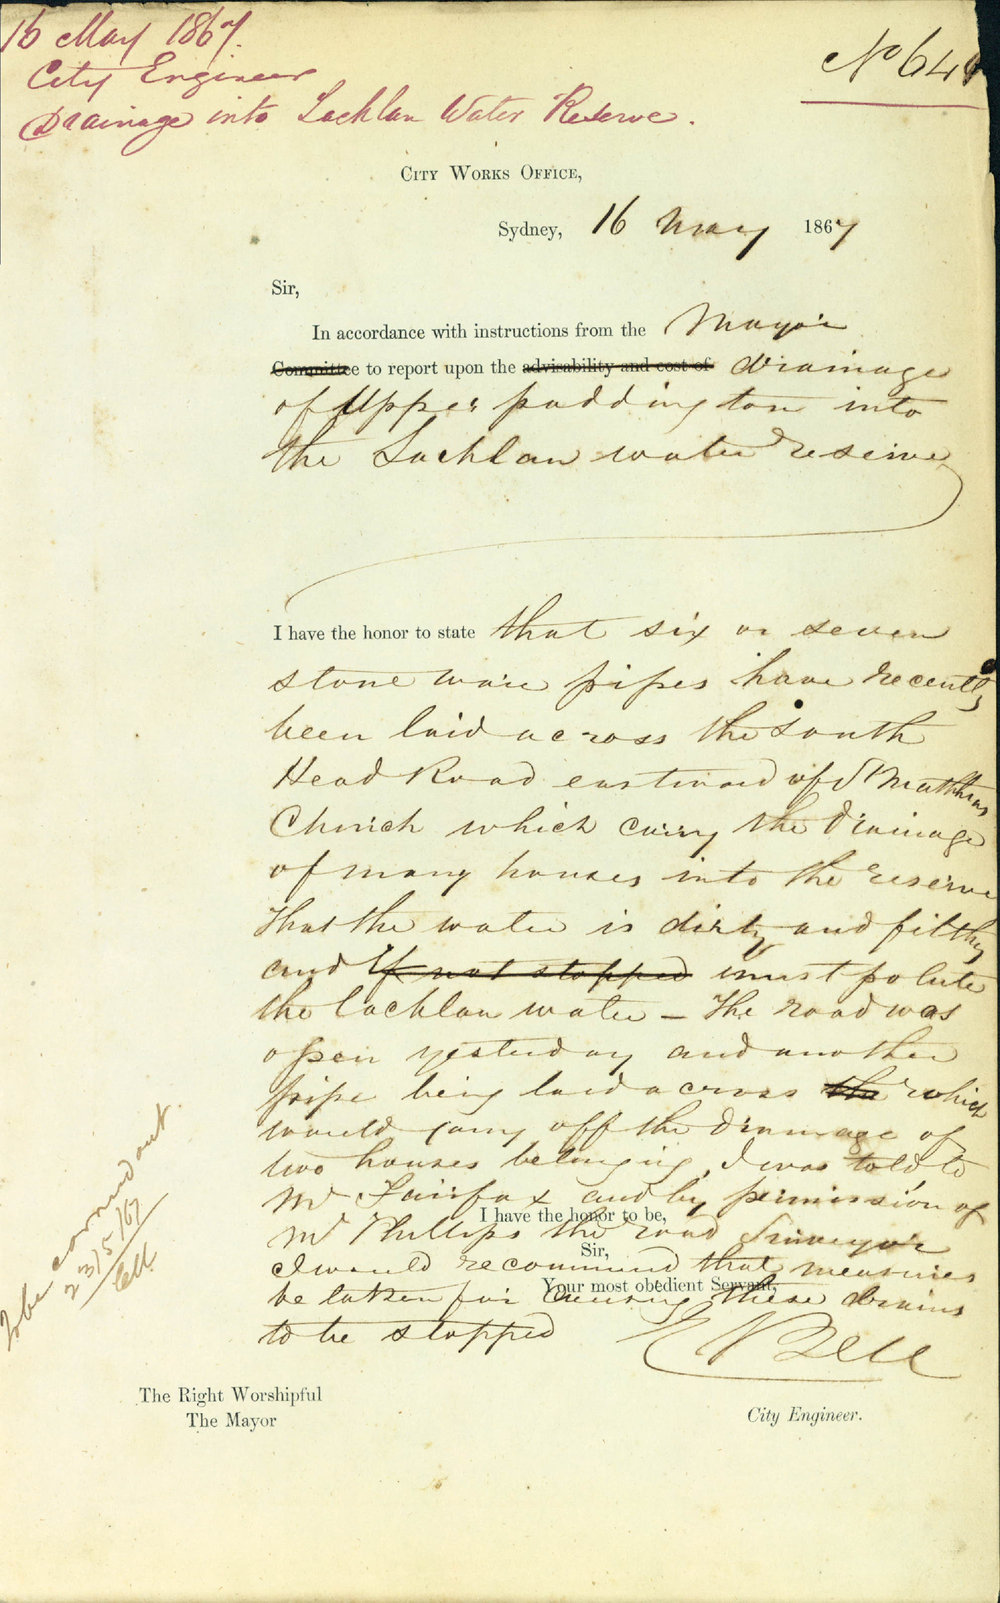 16 May 1867.
City Engineer
Drainage into Lachlan Water Reserve.
No 64
CITY WORKS OFFICE,
Sydney, 16 May 1867
Sir,
In accordance with instructions from the Mayor
Committee to report upon the advisability and cost of drainage
of Upper paddington into
the Lachlan water reserve
I have the honor to state that six or seven
stone ware pipes have recently
been laid across the South
Head Road eastward of St Matthias
Church which carry the drainage
of many houses into the reserve
that the water is dirty and filthy
and if not stopped must polute
the Lachlan water – The road was
open yesterday and another
pipe being laid across the which
would carry off the drainage of
two houses belonging, I was told to
Mr Fairfax and by permission of
I have the honor to be,
Mr Phillips the road Surveyor
Sir,
I would recommend that measures
Your most obedient Servant,
be taken for causing these drains
to be stopped
E Bell
The Right Worshipful
The Mayor
City Engineer.
To be carried out
23/5/67